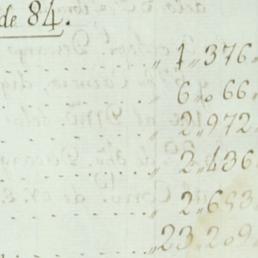 de 84.
1„376
6„066
2„972
2„436
2„653
23„209